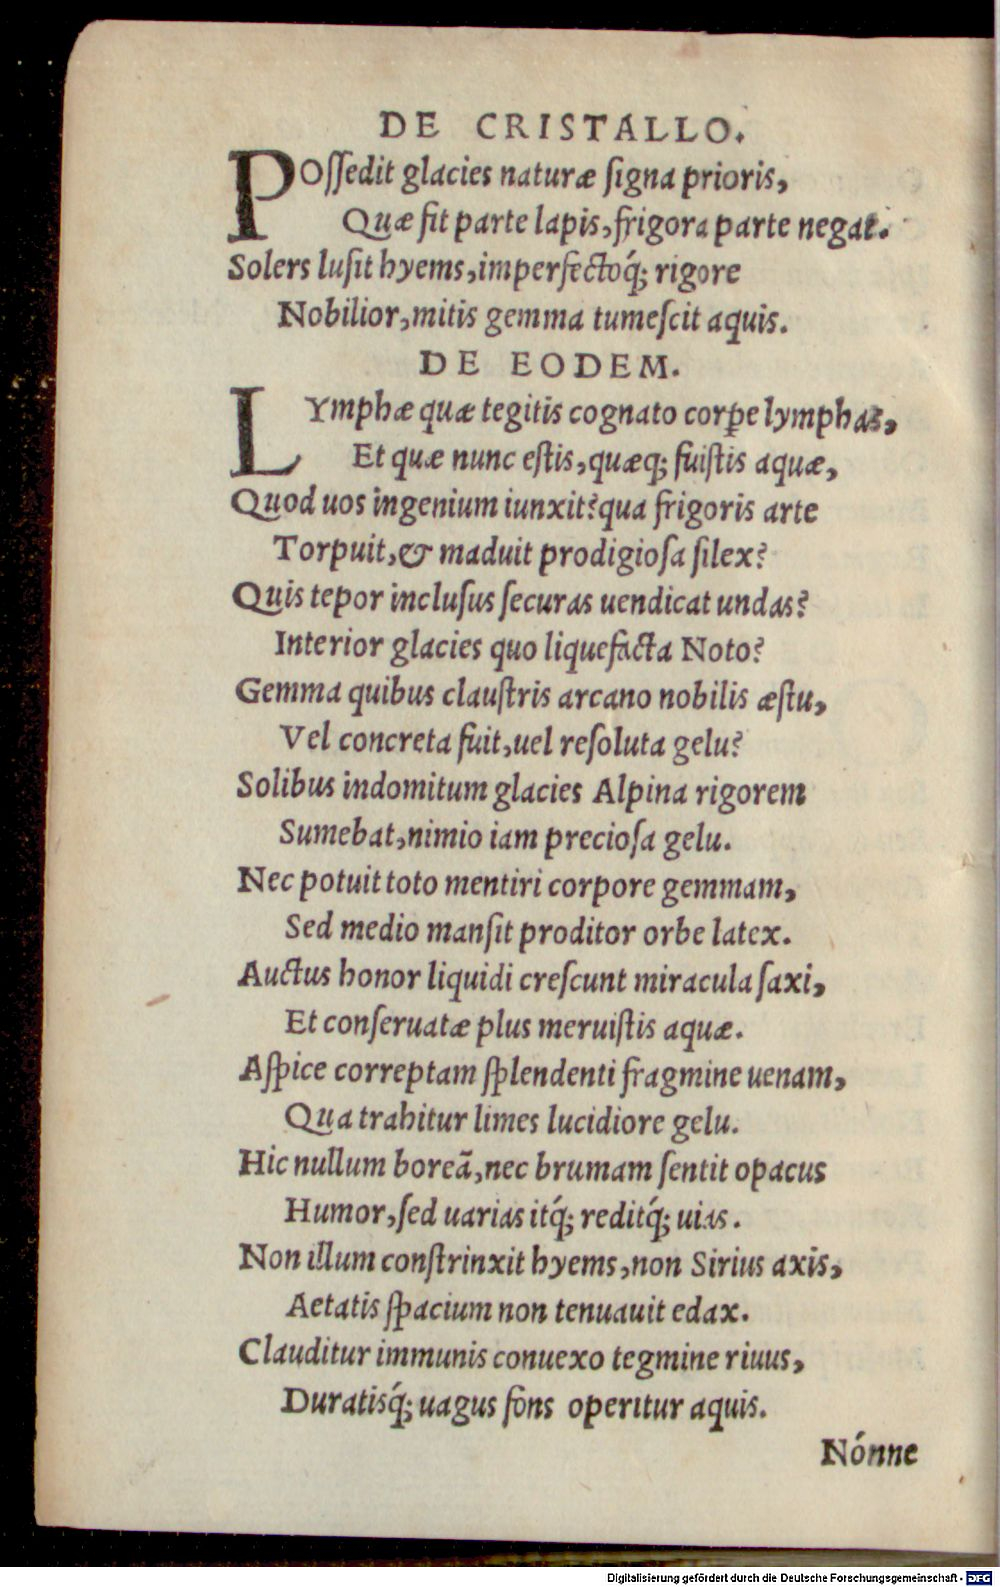 DE CRISTALLO.
POſſedit glacies naturæ ſigna prioris,
Quæ fit parte lapis, frigora parte negat.
Solers luſit hyems, imperfectoq́; rigore
Nobilior, mitis gemma tumeſcit aquis.
DE EODEM.
LYmphæ quæ tegitis cognato corꝑe lymphas,
Et quæ nunc eſtis, quæq; fuiſtis aquæ,
Quod uos ingenium iunxit? qua frigoris arte
Torpuit, & maduit prodigioſa ſilex?
Quis tepor incluſus ſecuras uendicat undas?
Interior glacies quo liquefacta Noto?
Gemma quibus clauſtris arcano nobilis æſtu,
Vel concreta fuit, uel reſoluta gelu?
Solibus indomitum glacies Alpina rigorem
Sumebat, nimio iam precioſa gelu.
Nec potuit toto mentiri corpore gemmam,
Sed medio manſit proditor orbe latex.
Auctus honor liquidi creſcunt miracula ſaxi,
Et conſeruatæ plus meruiſtis aquæ.
Aſpice correptam ſplendenti fragmine uenam,
Qua trahitur limes lucidiore gelu.
Hic nullum boreã, nec brumam ſentit opacus
Humor, ſed uarias itq́; reditq́; uias.
Non illum conſtrinxit hyems, non Sirius axis,
Aetatis ſpacium non tenuauit edax.
Clauditur immunis conuexo tegmine riuus,
Duratisq́; uagus fons operitur aquis.
Nónne
Digitalisierung gefördert durch die Deutsche Forschungsgemeinschaft - DFG